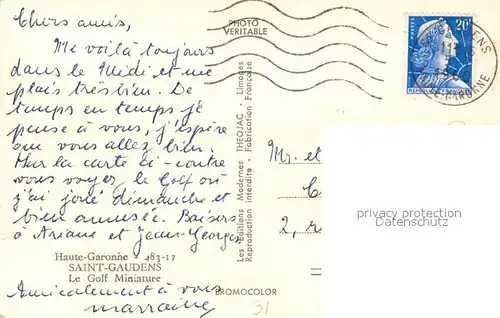 Chers amis,
Me voilà toujours
dans le Midi et me
plais très bien. De
temps en temps je
pense à vous, j'espère
que vous allez bien.
Sur la carte ci-contre
vous voyez le Golf où
j'ai joué dimanche et
bien amusée. Baisers
à Ariane et Jean-Georges
Haute-Garonne - 483-17
SAINT-GAUDENS
Le Golf Miniature
Amicalement à vous
marraine
PHOTO
VERITABLE
Les Editions Modernes THEOJAC Limoges
Reproduction interdite - Fabrication Française
BROMOCOLOR
31
20F
POSTES
GARONNE
Mr. et
2, r
privacy protection
datenschutz